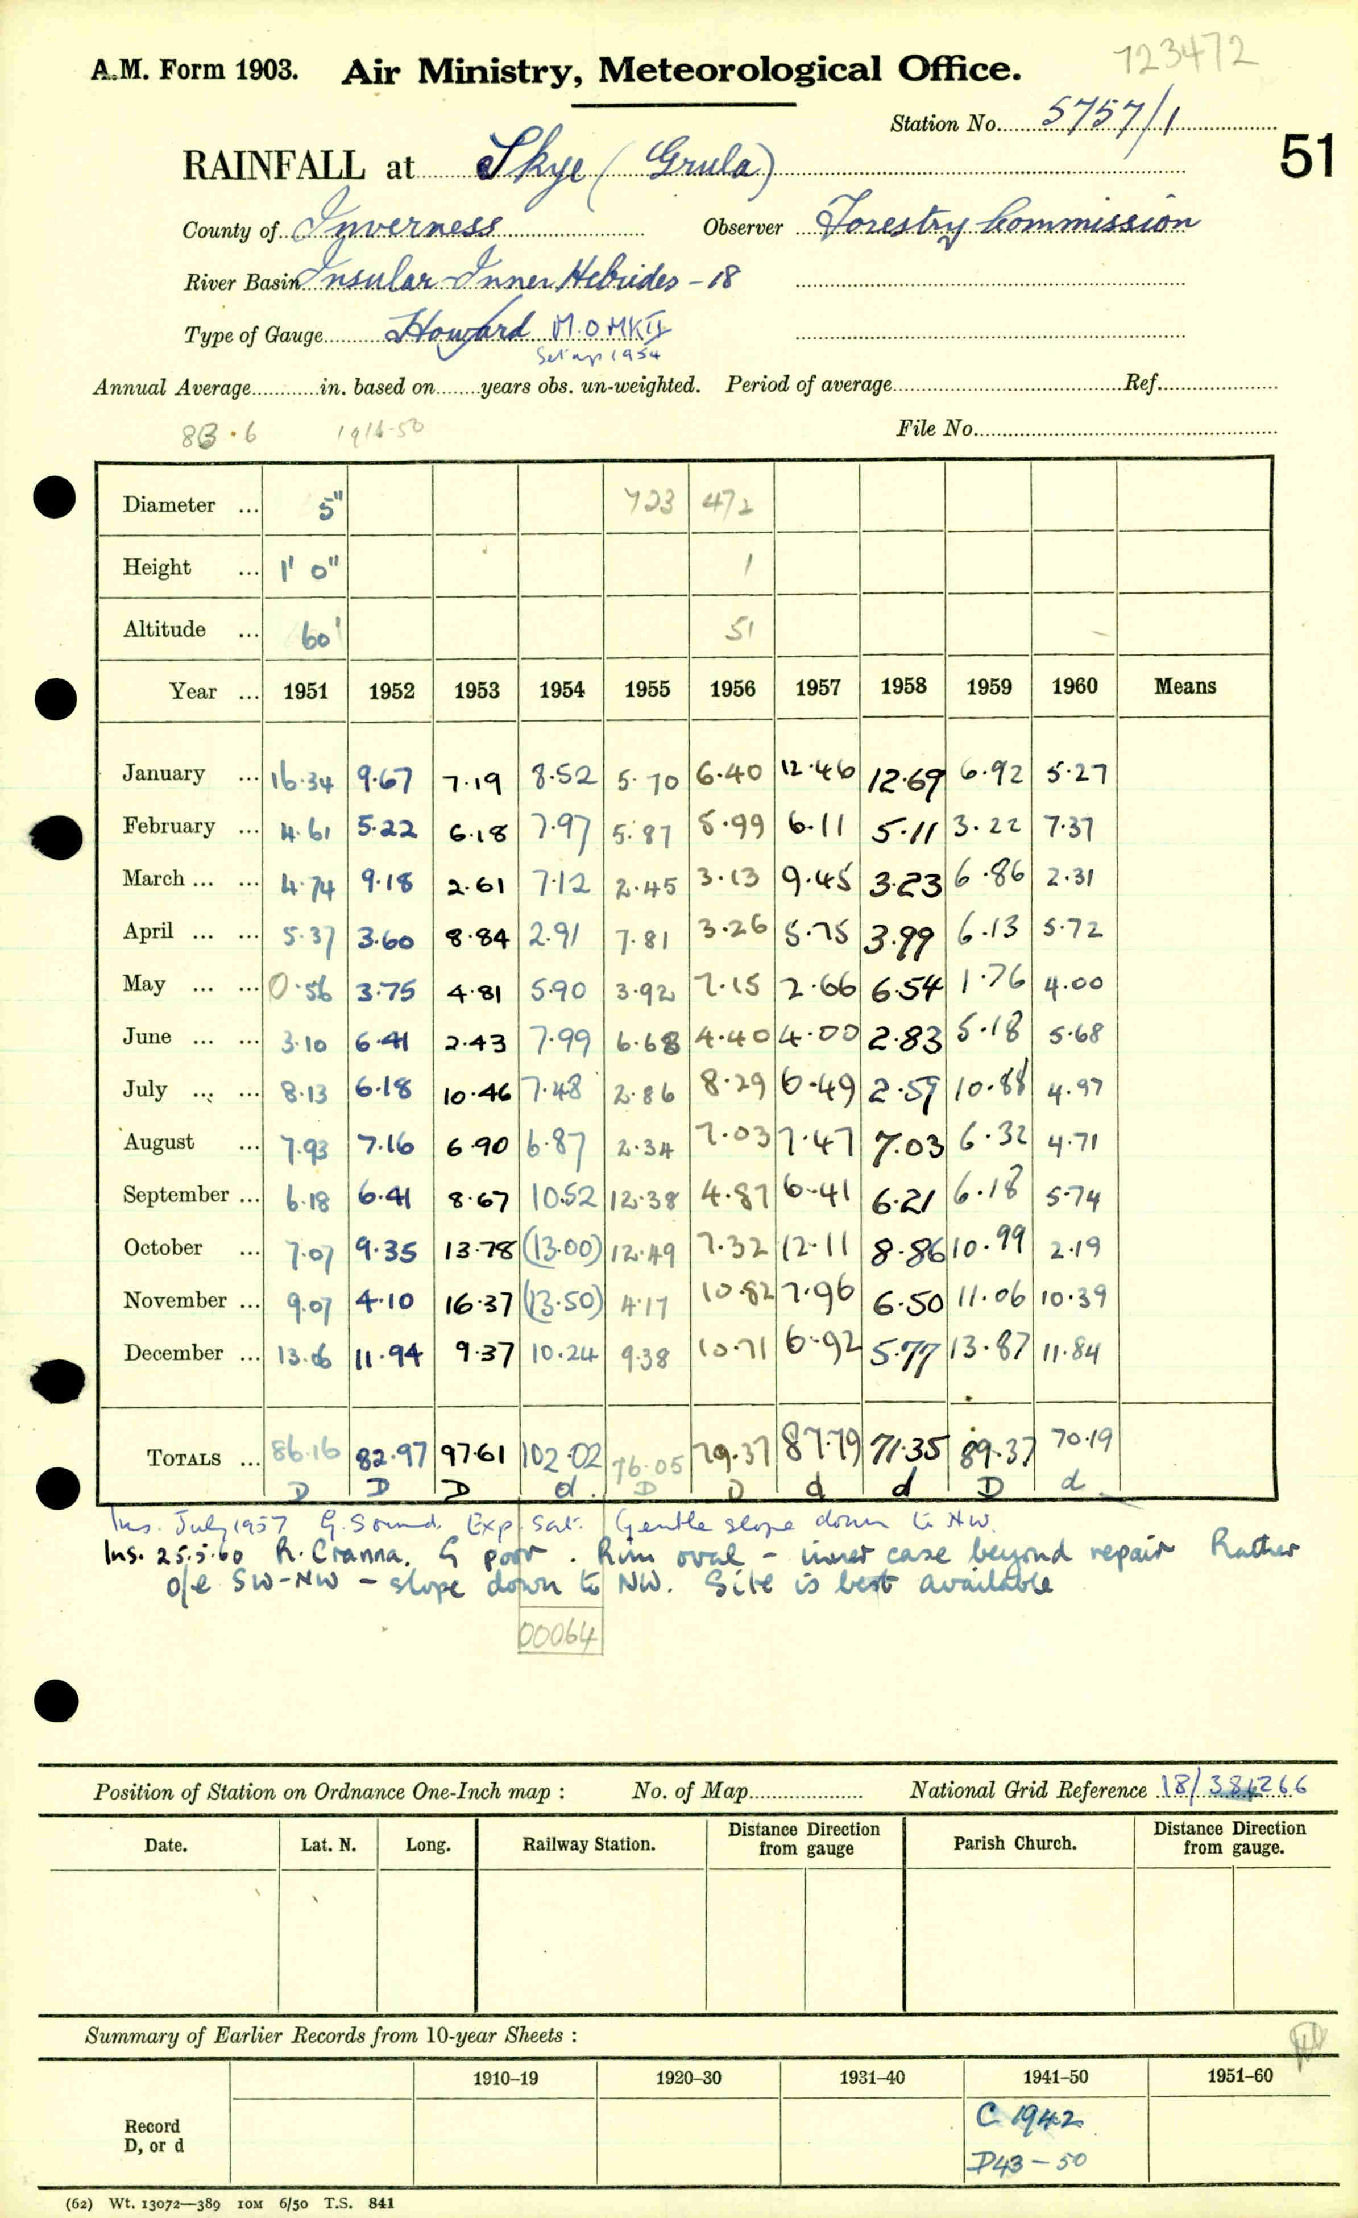 723472
A.M. Form 1903. Air Ministry, Meteorological Office.
Station No. 5757/1
51
RAINFALL at Skye (Grula)
County of Inverness Observer Forestry Commission
River Basin Insular Inner Hebrides - 18
Type of Gauge Howard M.O MKII
Set up 1954
Annual Average in. based on years obs. un-weighted. Period of average Ref.
83.6 1916-50 File No.
Diameter ... 5" 723 472
Height ... 1' 0" 1
Altitude ... 60' 51
Year ... 1951 1952 1953 1954 1955 1956 1957 1958 1959 1960 Means
January ... 16.34 9.67 7.19 8.52 5.70 6.40 12.46 12.69 6.92 5.27
February ... 4.61 5.22 6.18 7.97 5.87 5.99 6.11 5.11 3.22 7.37
March ... ... 4.74 9.18 2.61 7.12 2.45 3.13 9.45 3.23 6.86 2.31
April ... ... 5.37 3.60 8.84 2.91 7.81 3.26 5.75 3.99 6.13 5.72
May ... ... 0.56 3.75 4.81 5.90 3.92 7.15 2.66 6.54 1.76 4.00
June ... ... 3.10 6.41 2.43 7.99 6.68 4.40 4.00 2.83 5.18 5.68
July ... ... 8.13 6.18 10.46 7.48 2.86 8.29 6.49 2.59 10.88 4.97
August ... 7.93 7.16 6.90 6.87 2.34 7.03 7.47 7.03 6.32 4.71
September ... 6.18 6.41 8.67 10.52 12.38 4.87 6.41 6.21 6.18 5.74
October ... 7.07 9.35 13.78 (13.00) 12.49 7.32 12.11 8.86 10.99 2.19
November ... 9.07 4.10 16.37 (13.50) 4.17 10.82 7.96 6.50 11.06 10.39
December ... 13.06 11.94 9.37 10.24 9.38 10.71 6.92 5.77 13.87 11.84
TOTALS ... 86.16 82.97 97.61 102.02 76.05 79.37 87.79 71.35 89.37 70.19
D D D d. D D d d D d
Ins. July 1957 G. Sound. Exp. Sat. Gentle slope down to NW.
Ins. 25.5.60 R. Cranna. G poor. Rim oval - inner case beyond repair Rather
o/e SW-NW - slope down to NW. Site is best available
00064
Position of Station on Ordnance One-Inch map : No. of Map National Grid Reference 18/384266
Date. Lat. N. Long. Railway Station. Distance from Direction gauge Parish Church. Distance from Direction gauge.
Summary of Earlier Records from 10-year Sheets :
1910-19 1920-30 1931-40 1941-50 1951-60
Record
D, or d
C 1942
D43-50
(62) Wt. 13072—389 10M 6/50 T.S. 841